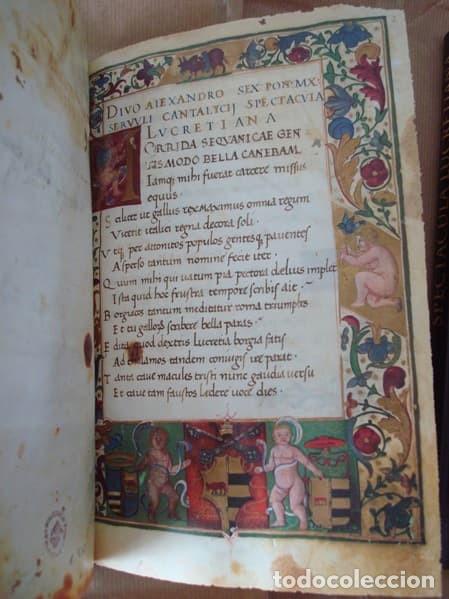 DIVO ALEXANDRO SEX PONT MX:
SERVVLI CANTALYCIJ SPECTACVLA
LVCRETIANA
HORRIDA SEQVANICAE GEN
TIS MODO BELLA CANEBAM
Iamq; mihi fuerat carcere missus
equus.
Scilicet ut gallus rex maximus omnia regum
Vicerit italici regna decora soli.
Vtq; per attonitos populos gentesq; pauentes
Aspero tantum nomine fecit iter.
Quum mihi qui uatum pia pectora delius implet
Ista quid hoc frustra tempore scribis ait
Borgiacos tantum meditetur roma triumphos
Et tu gallorum scribere bella paras.
Edita quod dextris lucretia borgia fatis
Ad Estenses tandem coniugis ire parat.
Tanta caue macules tristi nunc gaudia uersu
Et caue tam faustos ledere uoce dies.
2
SPECTACULA LUCRETIANA
todocoleccion